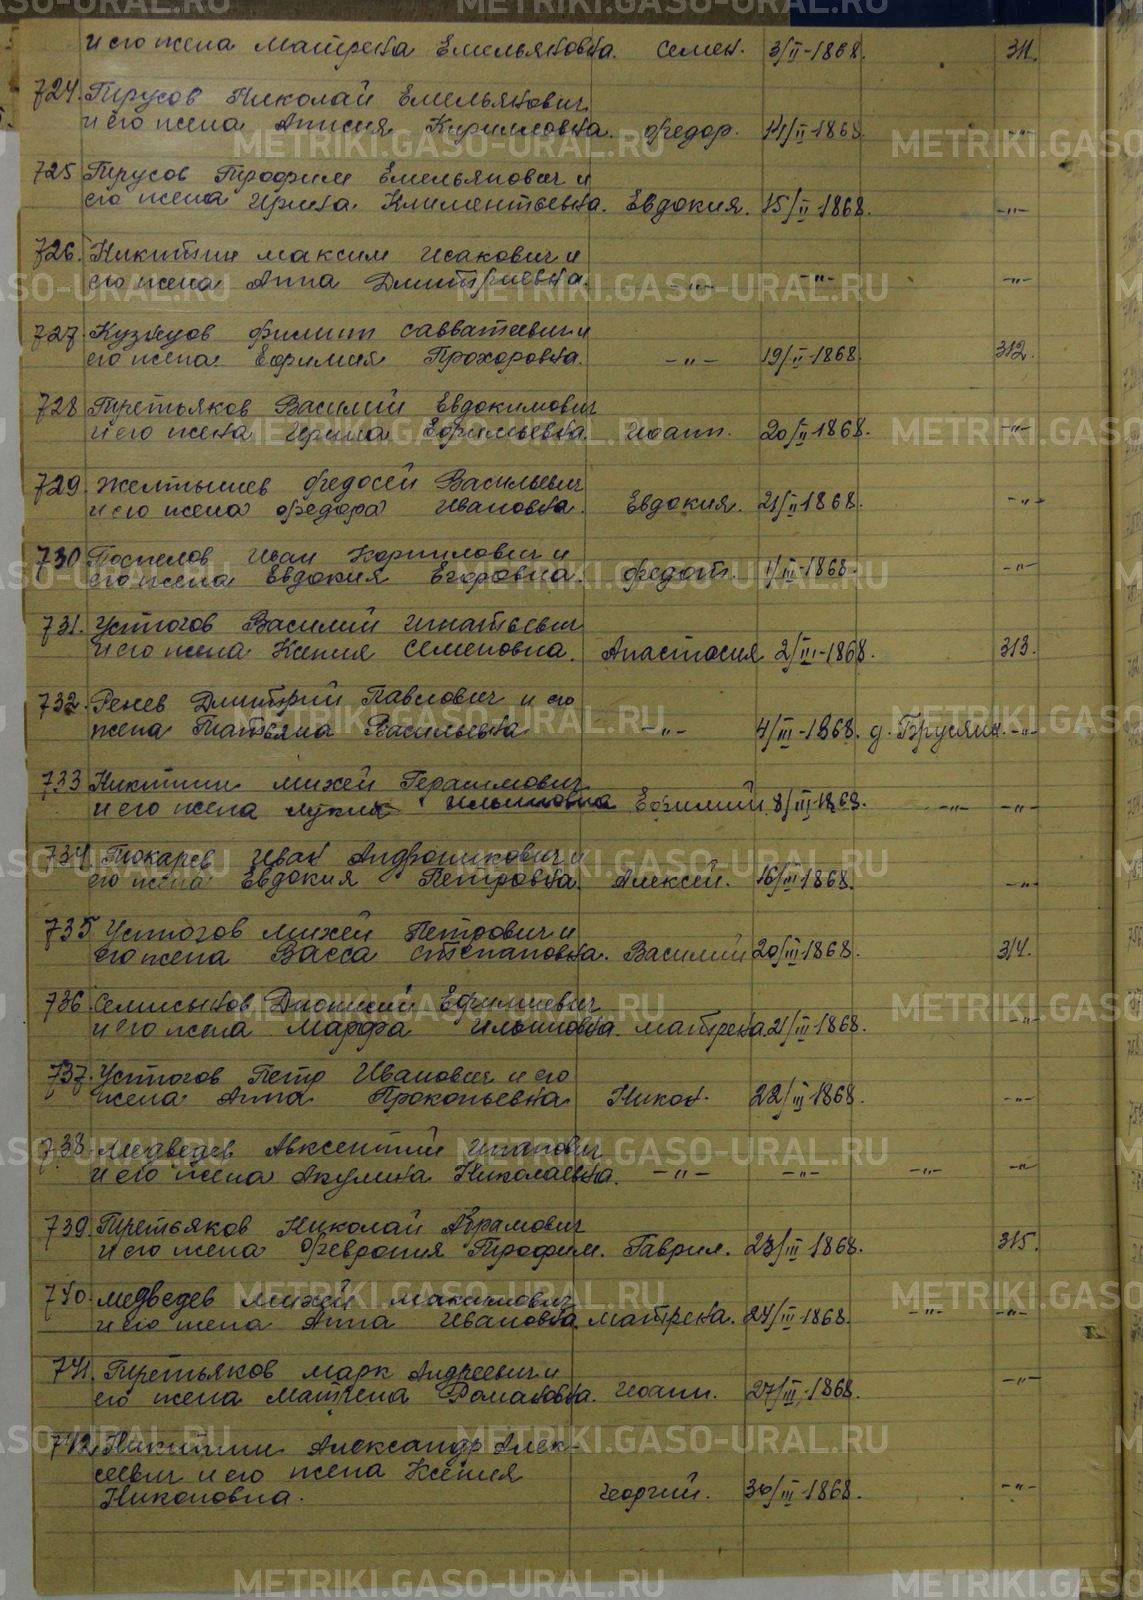 и его жена Матрена Емельяновна. Семен. 3/II-1868. 311.
724. Трусов Николай Емельянович
и его жена Анисия Кирилловна. Федор. 14/II-1868 -"-
725 Трусов Трофим Емельянович и
его жена Ирина Климентьевна. Евдокия. 15/II-1868. -"-
726. Никитин Максим Исакович и
его жена Анна Дмитриевна. -"- -"- -"-
727. Кузнецов Филипп Савватеевич и
его жена Ефимия Прохоровна. -"- 19/II-1868 312.
728 Третьяков Василий Евдокимович
и его жена Ирина Ефимьевна. Иоанн. 20/II-1868. -"-
729. Желтышев Федосей Васильевич
и его жена Федора Ивановна. Евдокия. 21/II-1868. -"-
730 Поспелов Иван Корнилович и
его жена Евдокия Егоровна. Федот. 1/III-1868. -"-
731. Устюгов Василий Игнатьевич
и его жена Ксения Семеновна. Анастасия 2/III-1868. 313.
732. Ренев Дмитрий Павлович и его
жена Татьяна Васильевна -"- 4/III-1868. д. Брусяна. -"-
733 Никитин Михей Герасимович
и его жена Лукия Ильиновна Ефимий. 8/III-1868. -"- -"-
734. Токарев Иван Андроникович и
его жена Евдокия Петровна. Алексей. 16/III-1868. -"-
735 Устюгов Михей Петрович и
его жена Васса Степановна. Василий 20/III-1868. 314.
736 Дионисий Ефимиевич
и его жена Марфа Ильиновна. Матрена. 21/III-1868. -"-
737. Устюгов Петр Иванович и его
жена Анна Прокопьевна Никон. 22/III-1868. -"-
738. Медведев Авксентий Ипатович
и его жена Акулина Николаевна. -"- -"- -"- -"-
739. Третьяков Николай Абрамович
и его жена Феврония Трофим. Гаврил. 23/III-1868. 315.
740. Медведев Михей Макимович
и его жена Анна Ивановна. Матрена. 24/III-1868. -"- -"-
741. Третьяков Марк Андреевич и
его жена Матрена Романовна. Иоанн. 27/III-1868. -"-
742. Никитин Александр Алек-
сеевич и его жена Ксения
Никоновна. Георгий. 30/III-1868. -"-
METRIKI.GASO-URAL.RU